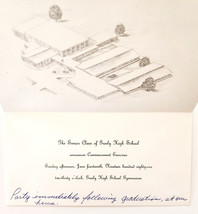 The Senior Class of Greely High School
announces Commencement Exercises
Sunday afternoon, June fourteenth, Nineteen hundred eighty-one
two-thirty o'clock, Greely High School Gymnasium
Party immediately following graduation, at our
home.